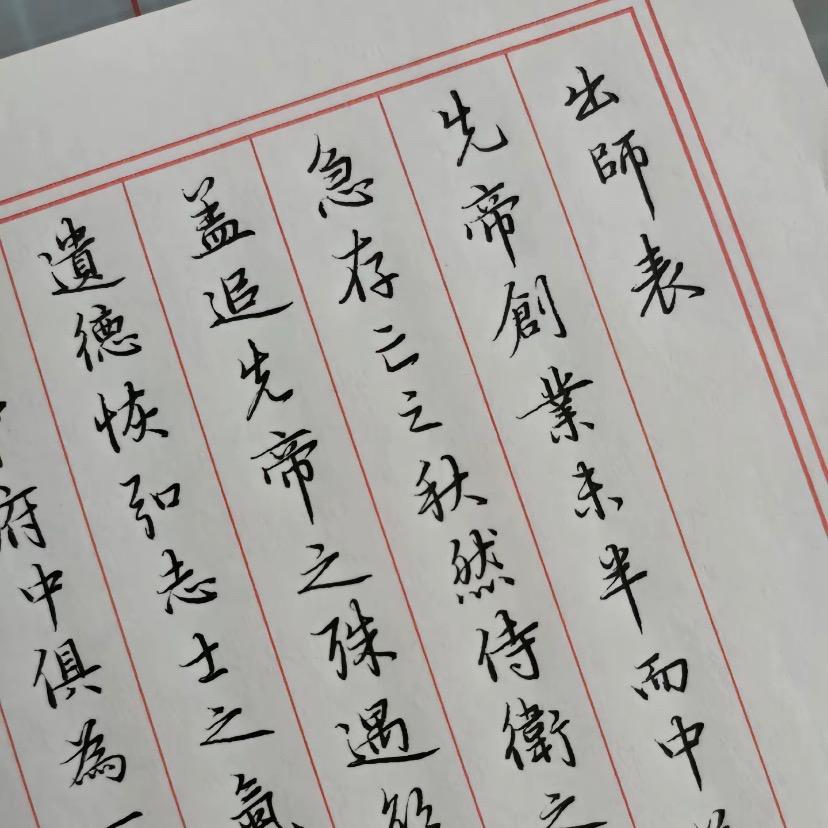 出師表
先帝創業未半而中
急存亡之秋然侍衛之
盖追先帝之殊遇
遺德恢弘志士之氣
府中俱為一